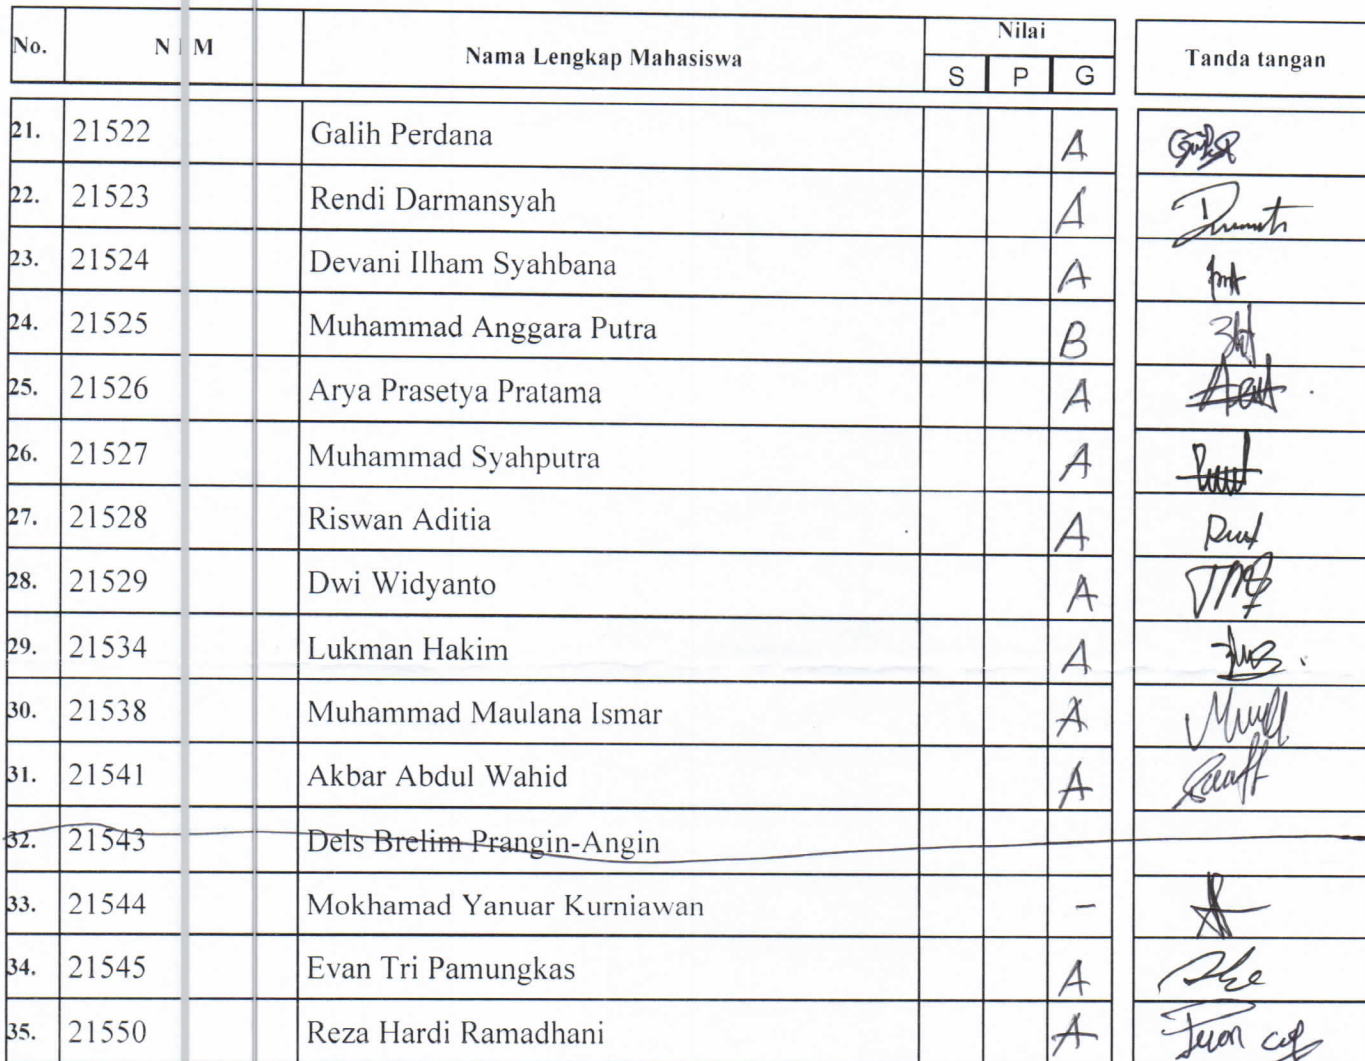 No. N I M Nama Lengkap Mahasiswa Nilai Tanda tangan
S P G
21. 21522 Galih Perdana A
22. 21523 Rendi Darmansyah A
23. 21524 Devani Ilham Syahbana A
24. 21525 Muhammad Anggara Putra B
25. 21526 Arya Prasetya Pratama A
26. 21527 Muhammad Syahputra A
27. 21528 Riswan Aditia A
28. 21529 Dwi Widyanto A
29. 21534 Lukman Hakim A
30. 21538 Muhammad Maulana Ismar A
31. 21541 Akbar Abdul Wahid A
32. 21543 Dels Brelim Prangin-Angin
33. 21544 Mokhamad Yanuar Kurniawan -
34. 21545 Evan Tri Pamungkas A
35. 21550 Reza Hardi Ramadhani A